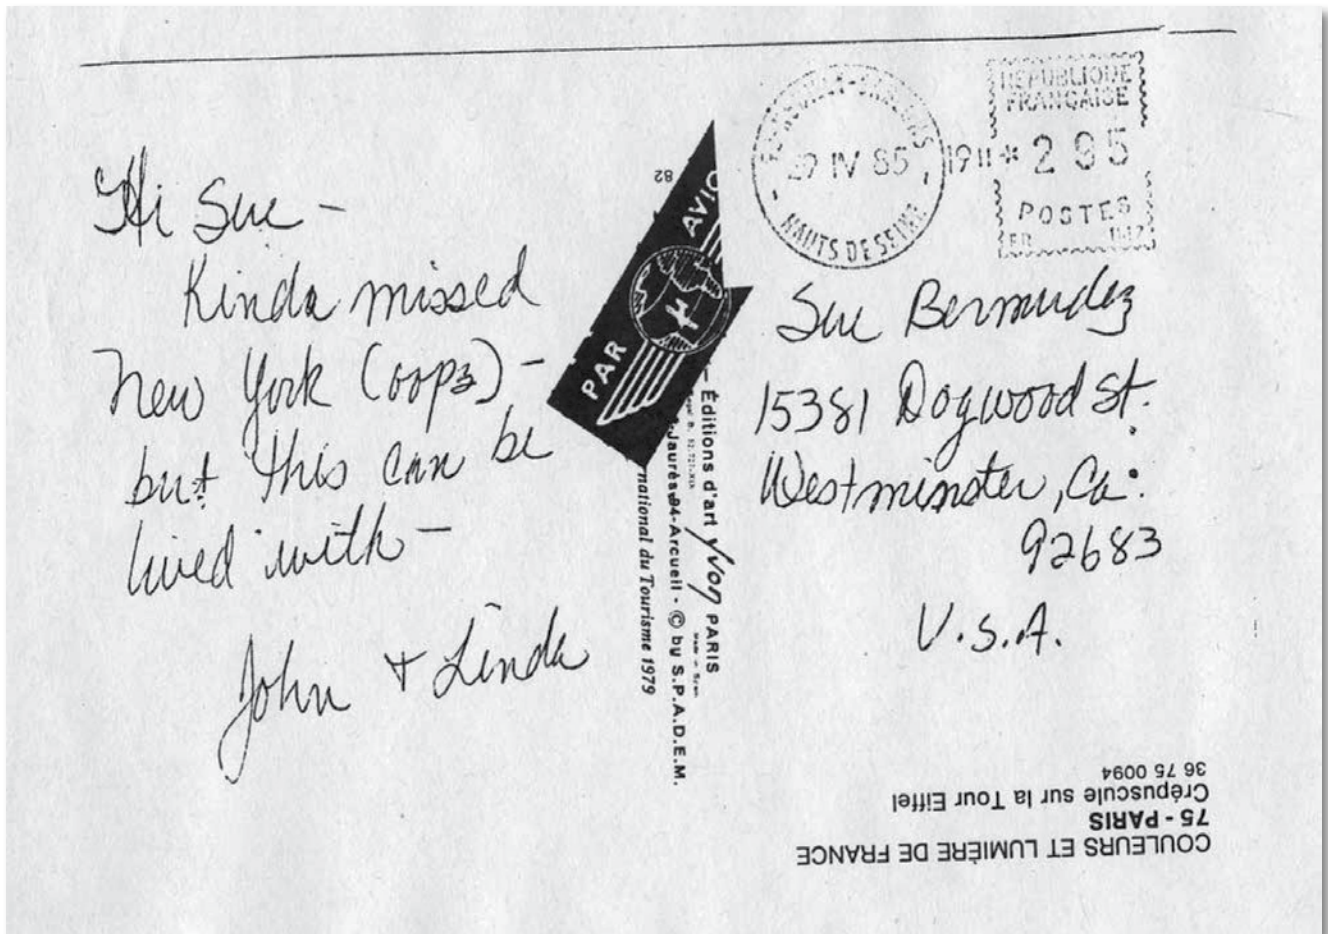 Hi Sue -
Kinda missed
New York (oops) -
but this can be
lived with -
John + Linda
82
PAR AVIO
Éditions d'art YVON PARIS
Jaurès 94-Arcueil - © by S.P.A.D.E.M.
national du Tourisme 1979
HAUTS DE SEINE
IV 85
19 H *
REPUBLIQUE
FRANÇAISE
295
POSTES
Sue Bermudez
15381 Dogwood St.
Westminster, Ca.
92683
U.S.A.
COULEURS ET LUMIÈRE DE FRANCE
75 - PARIS
Crépuscule sur la Tour Eiffel
36 75 0094